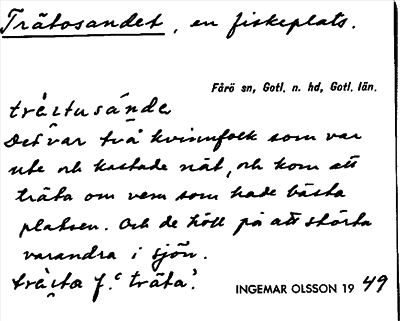 Trätosandet, en fiskeplats.
Fårö sn, Gotl. n. hd, Gotl. län.
Det var två kvinnfolk som var
ute och kastade nät, och kom att
träta om vem som hade bästa
platsen. Och de höll på att störta
varandra i sjön.
f. 'träta'.
INGEMAR OLSSON 19 49